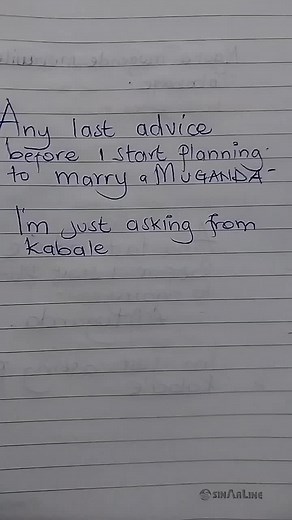 Any last advice
before I start planning.
to marry a MUGANDA-
I'm just asking from
Kabale
SINARLINE